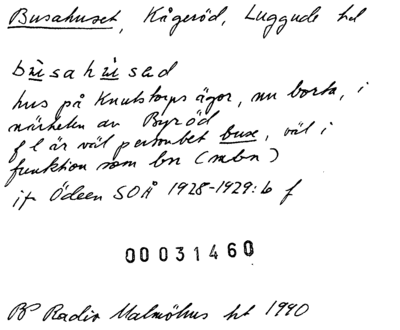 Busahuset, Kågeröd, Luggude hd
bùsahùsəd
hus på Knutstorps ägor, nu borta, i
närheten av Byröd
f l är väl personbet buse, väl i
funktion som bn (mbn)
jfr Ödeen SOÅ 1928-1929:6 f
00031460
BP Radio Malmöhus ht 1990